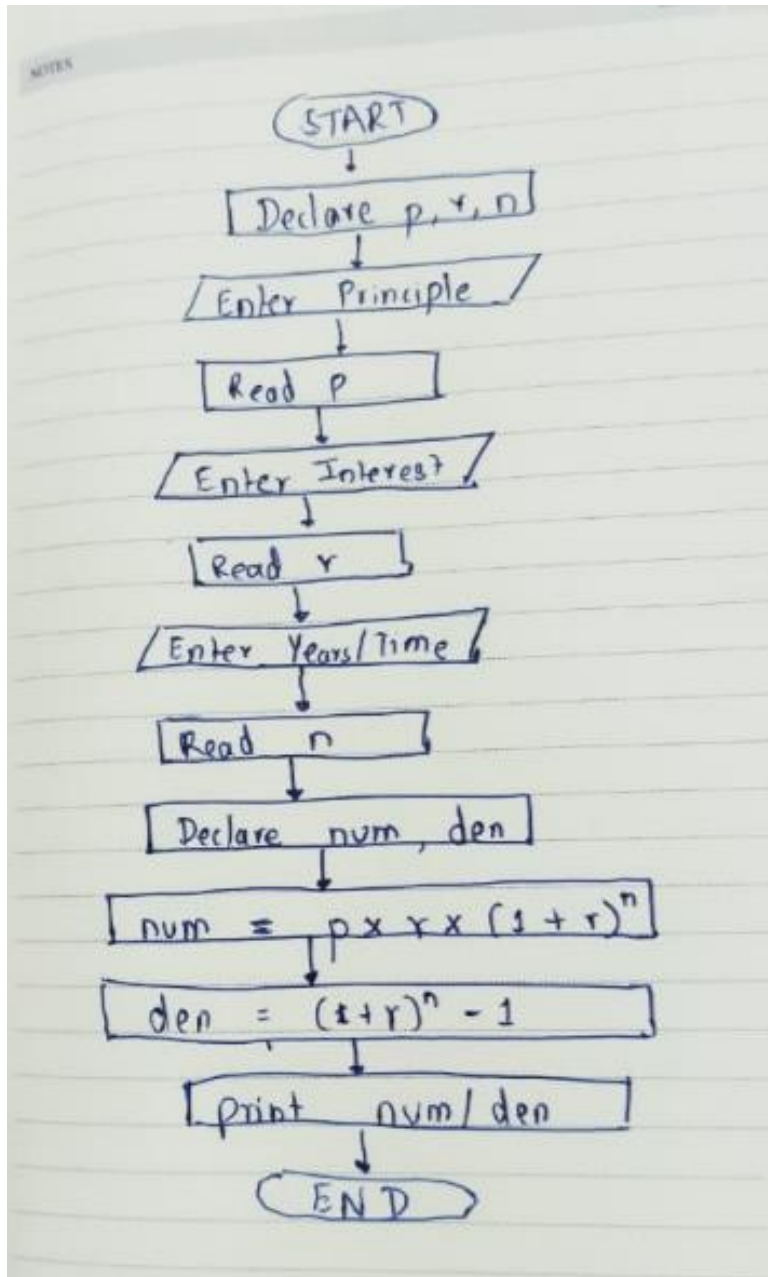 NOTES
START
Declare p, r, n
Enter Principle
Read p
Enter Interest
Read r
Enter Years/Time
Read n
Declare num, den
num = p x r x (1 + r)ⁿ
den = (1+r)ⁿ - 1
print num/den
END